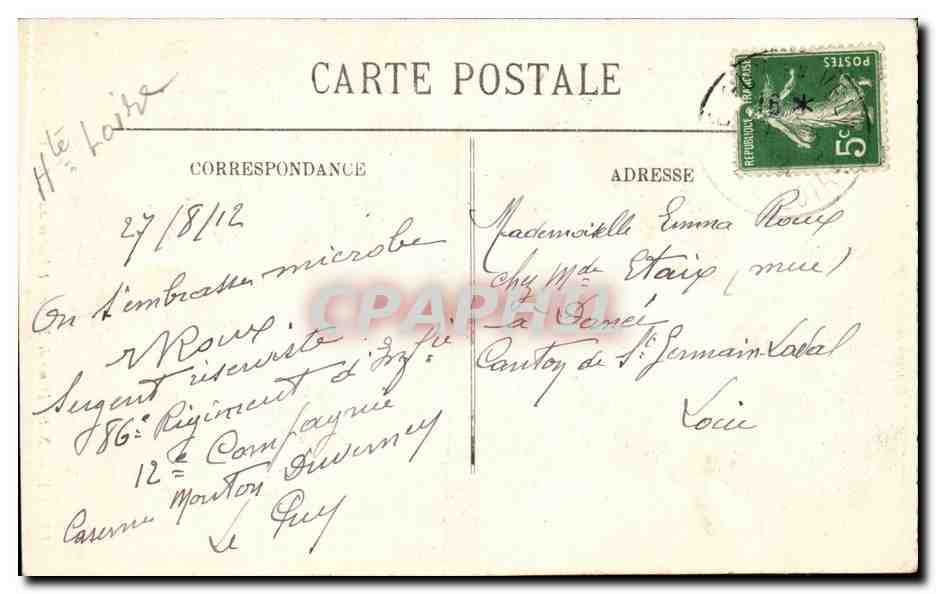 CARTE POSTALE
Hte Loire
CORRESPONDANCE
27/8/12
On t'embrasse microbe
Roux
Sergent réserviste
86e Régiment d'Infie
12e Compagnie
Caserne Mouton Duverney
Le Puy
ADRESSE
Mademoiselle Emma Roux
chez Mde Etaix (mere)
à Dancé
Canton de St Germain-Laval
Loire
REPUBLIQUE FRANÇAISE
POSTES
5c
CPAPHIL